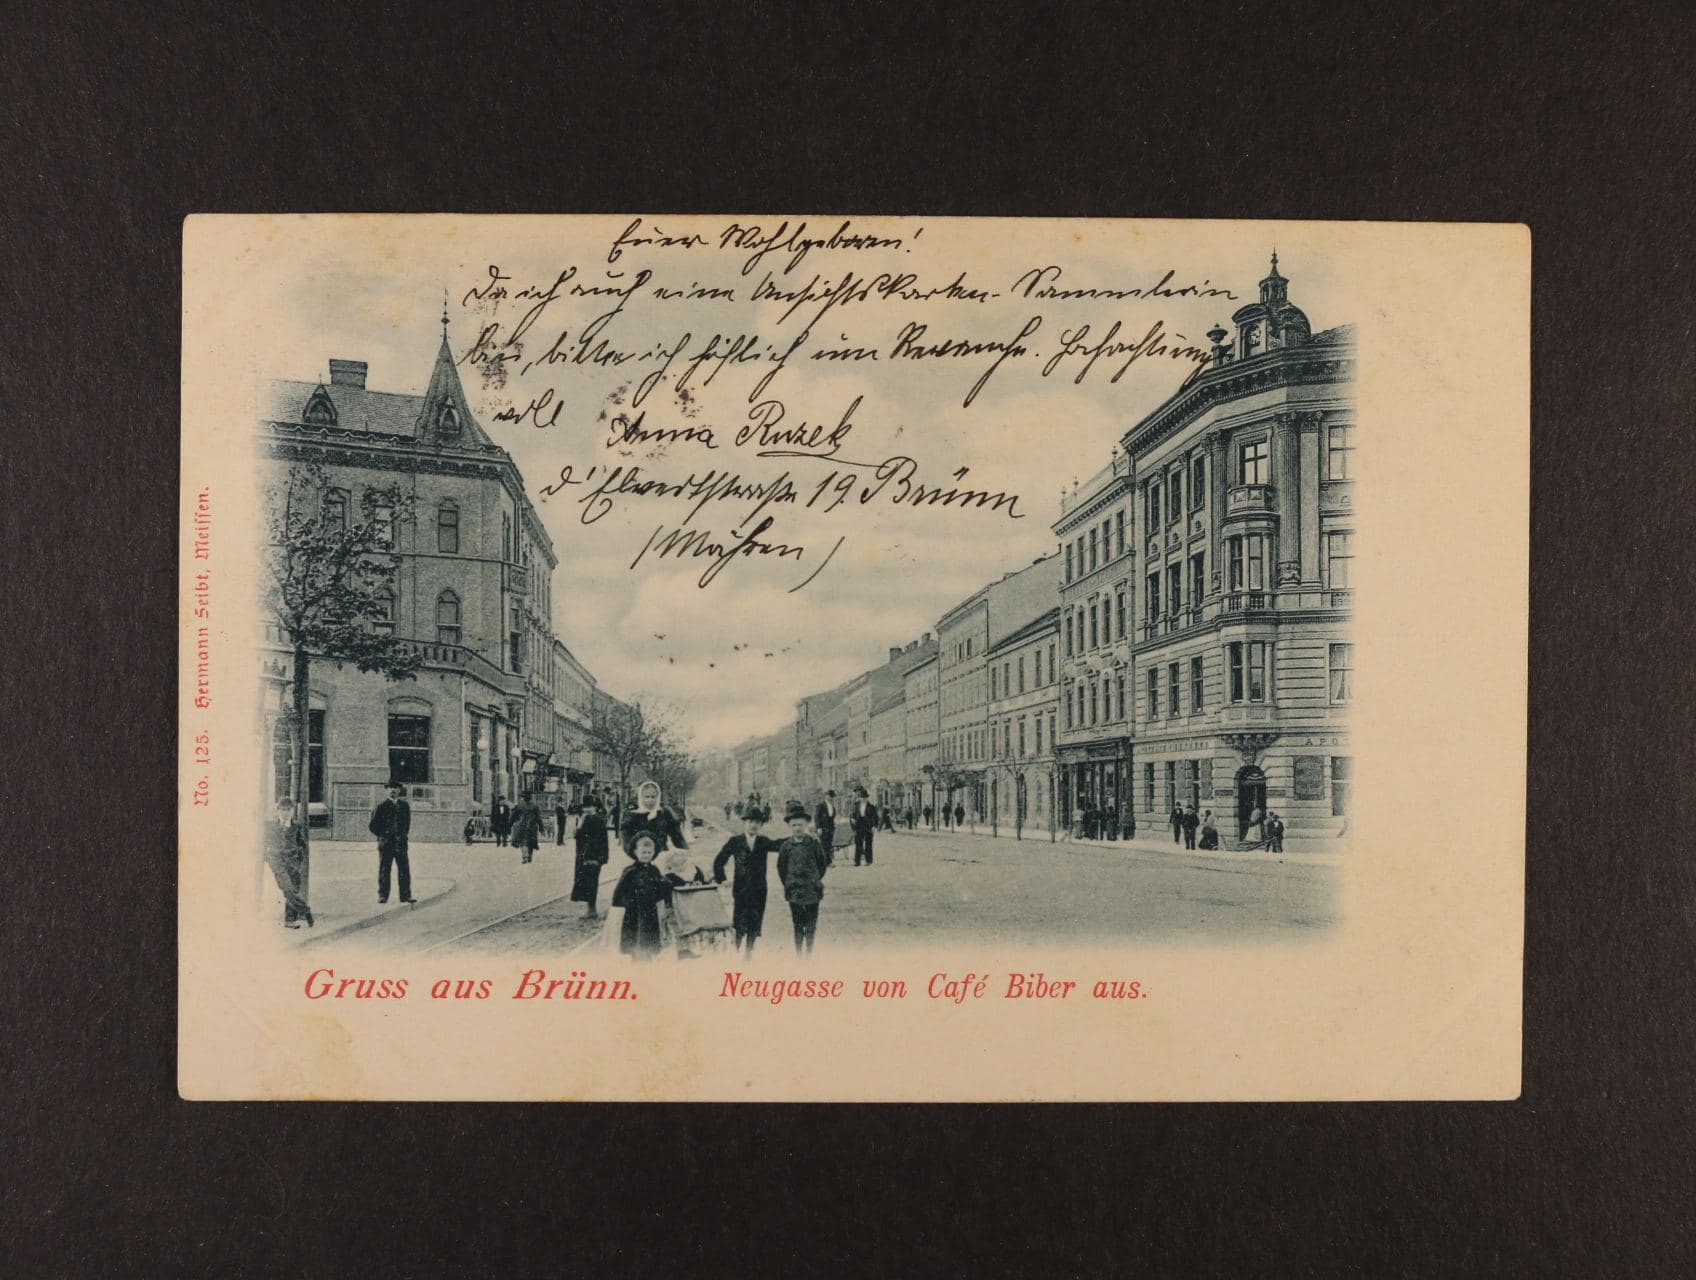 Euer Wohlgeboren!
Da ich auch eine Ansichtskarten-Sammlerin
bin, bitte ich höflich um Revanche. Hochachtungs
voll
Anna Ruzek
d'Elvertstraße 19. Brünn
(Mähren)
No. 125. Hermann Seibt, Meissen.
APO
Gruss aus Brünn. Neugasse von Café Biber aus.